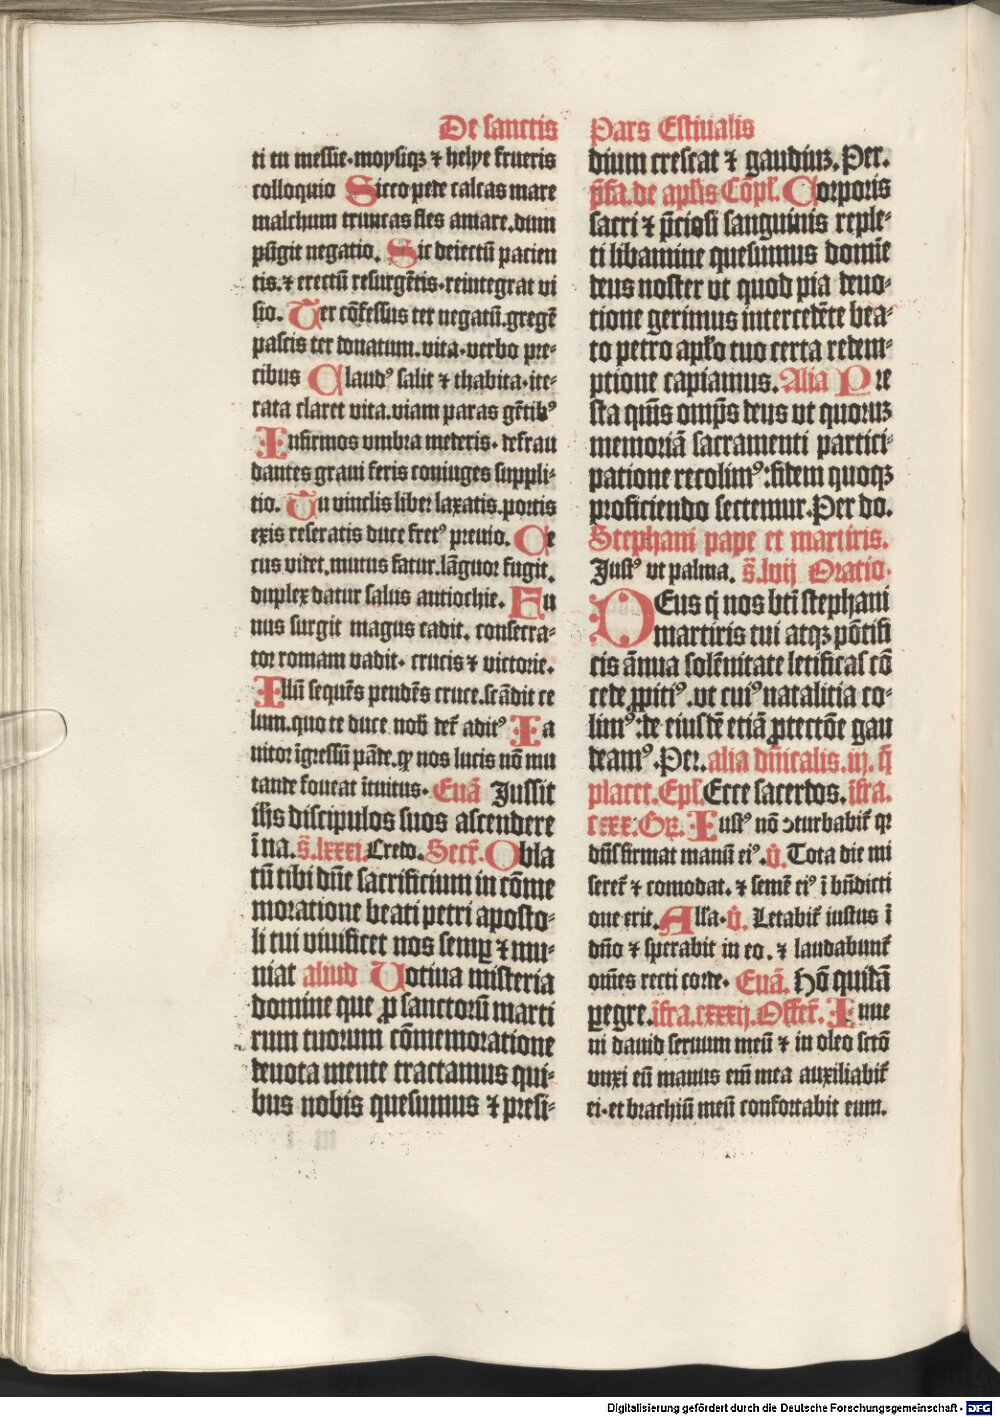 De sanctis
ti tu messie·moysiqꝫ ⁊ helye frueris
colloquio Sicco pede calcas mare
malchum truncas fles amare.dum
pūgit negatio. Sic deiectū pacien
tis.⁊ erectū resurgētis·reintegrat vi
sio. Ter cōfessus ter negatū.gregē
pascis ter donatum.vita·verbo pre⸗
cibus Claudꝰ salit ⁊ thabita·ite⸗
rata claret vita.viam paras gētibꝰ
Infirmos vmbra mederis· defrau
dantes graui feris coniuges suppli⸗
tio. Tu vinclis liber laxatis.portis
exis reseratis duce fretꝰ preuio. Ce
cus videt.mutus fatur.lāguor fugit.
duplex datur salus antiochie. Fu
nus surgit magus cadit. consecra⸗
tor romam vadit· crucis ⁊ victorie.
Illū sequēs pendēs cruce.scādit ce
lum.quo te duce nob̄ det̄ aditꝰ Ia
nitor īgressū pāde.ꝙ nos lucis nō mu
tande foueat ītuitus· Euā Jussit
ih̄s discipulos suos ascendere
ī na.s̄.lxxxi.Credo.Secr̄. Obla
tū tibi dn̄e sacrificium in cōme
moratione beati petri aposto⸗
li tui viuificet nos semꝑ ⁊ mu⸗
niat aliud Votiua misteria
domine que ꝓ sanctorū marti
rum tuorum cōmemoratione
deuota mente tractamus qui⸗
bus nobis quesumus ⁊ presi⸗
Pars Estiualis
dium crescat ⁊ gaudiuꝫ.Per.
p̄fa.de aplis Cōpl̄. Corporis
sacri ⁊ p̄ciosi sanguinis reple⸗
ti libamine quesumus domīe
deus noster vt quod pia deuo⸗
tione gerimus intercedēte bea⸗
to petro apl̄o tuo certa redem⸗
ptione capiamus. Alia Pre
sta qm̄s omp̄s deus vt quoruꝫ
memoriā sacramenti partici⸗
patione recolimꝰ:fidem quoqꝫ
proficiendo sectemur.Per do.
Stephani pape et martiris.
Justꝰ vt palma. s̄.lvij Oratio·
DEus q̄ nos bt̄i stephani
martiris tui atqꝫ pōtifi
cis ānua solēnitate letificas cō
cede ꝓpitiꝰ.vt cuiꝰ natalitia co⸗
limꝰ:de eiusdē etiā ꝓtectōe gau
deamꝰ.Per.alia dn̄icalis.iij.q̄
placet.Epl̄.Ecce sacerdos.īfra.
cxxx.Gr̄. Iustꝰ nō ꝯturbabit̄ qꝛ
dn̄s firmat manū eiꝰ.v̄. Tota die mi
seret̄ ⁊ comodat.⁊ semē eiꝰ ī bn̄dicti
one erit.All̄a·v̄. Letabit̄ iustus ī
dn̄o ⁊ sperabit in eo.⁊ laudabunt̄
om̄es recti corde· Euā. Hō quidā
ꝑegre.īfra.cxxxij.Offert̄. Inue
ni dauid seruum meū ⁊ in oleo sctō
vnxi eū manus em̄ mea auxiliabit̄
ei·et brachiū meū confortabit eum.
Digitalisierung gefördert durch die Deutsche Forschungsgemeinschaft - DFG